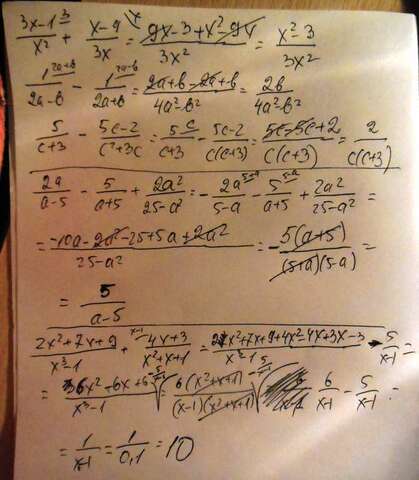 (3x-1)/x² ³ + (x-9)/3x \x = (9x-3+x²-9x)/3x² = (x²-3)/3x²
1/(2a-b) \2a+b - 1/(2a+b) \2a-b = (2a+b-2a+b)/(4a²-b²) = 2b/(4a²-b²)
5/(c+3) - (5c-2)/(c²+3c) = 5/(c+3) \c - (5c-2)/(c(c+3)) = (5c-5c+2)/(c(c+3)) = 2/(c(c+3))
2a/(a-5) - 5/(a+5) + 2a²/(25-a²) = - 2a/(5-a) \5+a - 5/(a+5) \5-a + 2a²/(25-a²) =
= (-10a-2a²-25+5a+2a²)/(25-a²) = - 5(a+5)/((5+a)(5-a)) =
= 5/(a-5)
(2x²+7x+9)/(x³-1) + x-1\ (4x+3)/(x²+x+1) = (2x²+7x+9+4x²-4x+3x-3)/(x³-1) - 5/(x-1) =
= (6x²+6x+6)/(x³-1) - 5/(x-1) = 6(x²+x+1)/((x-1)(x²+x+1)) 6/(x-1) - 5/(x-1) =
= 1/(x-1) = 1/0,1 = 10